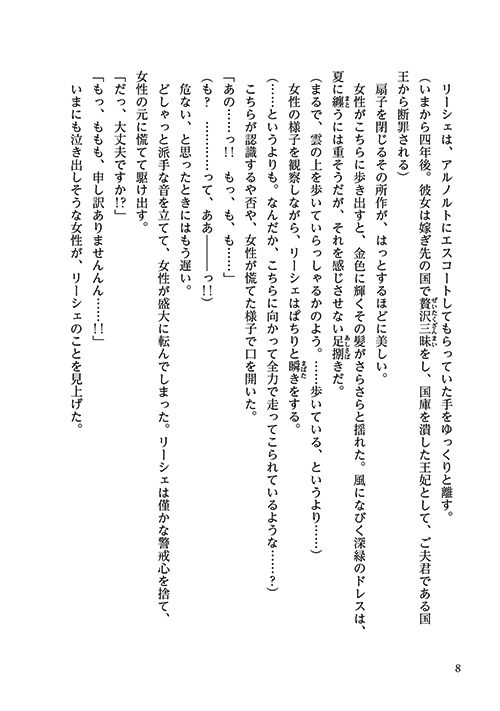 リーシェは、アルノルトにエスコートしてもらっていた手をゆっくりと離す。
(いまから四年後。彼女は嫁ぎ先の国で贅沢三昧をし、国庫を潰した王妃として、ご夫君である国
王から断罪される)
扇子を閉じるその所作が、はっとするほどに美しい。
女性がこちらに歩き出すと、金色に輝くその髪がさらさらと揺れた。風になびく深緑のドレスは、
夏に纏うには重そうだが、それを感じさせない足捌きだ。
(まるで、雲の上を歩いていらっしゃるかのよう。……歩いている、というより……)
女性の様子を観察しながら、リーシェはぱちりと瞬きをする。
(……というよりも。なんだか、こちらに向かって全力で走ってこられているような……?)
こちらが認識するや否や、女性が慌てた様子で口を開いた。
「あの……っ!! もっ、も、も……」
(も? …………って、ああ――っ!!)
危ない、と思ったときにはもう遅い。
どしゃっと派手な音を立てて、女性が盛大に転んでしまった。リーシェは僅かな警戒心を捨て、
女性の元に慌てて駆け出す。
「だっ、大丈夫ですか!?」
「もっ、ももも、申し訳ありませんんん……!!」
いまにも泣き出しそうな女性が、リーシェのことを見上げた。
8